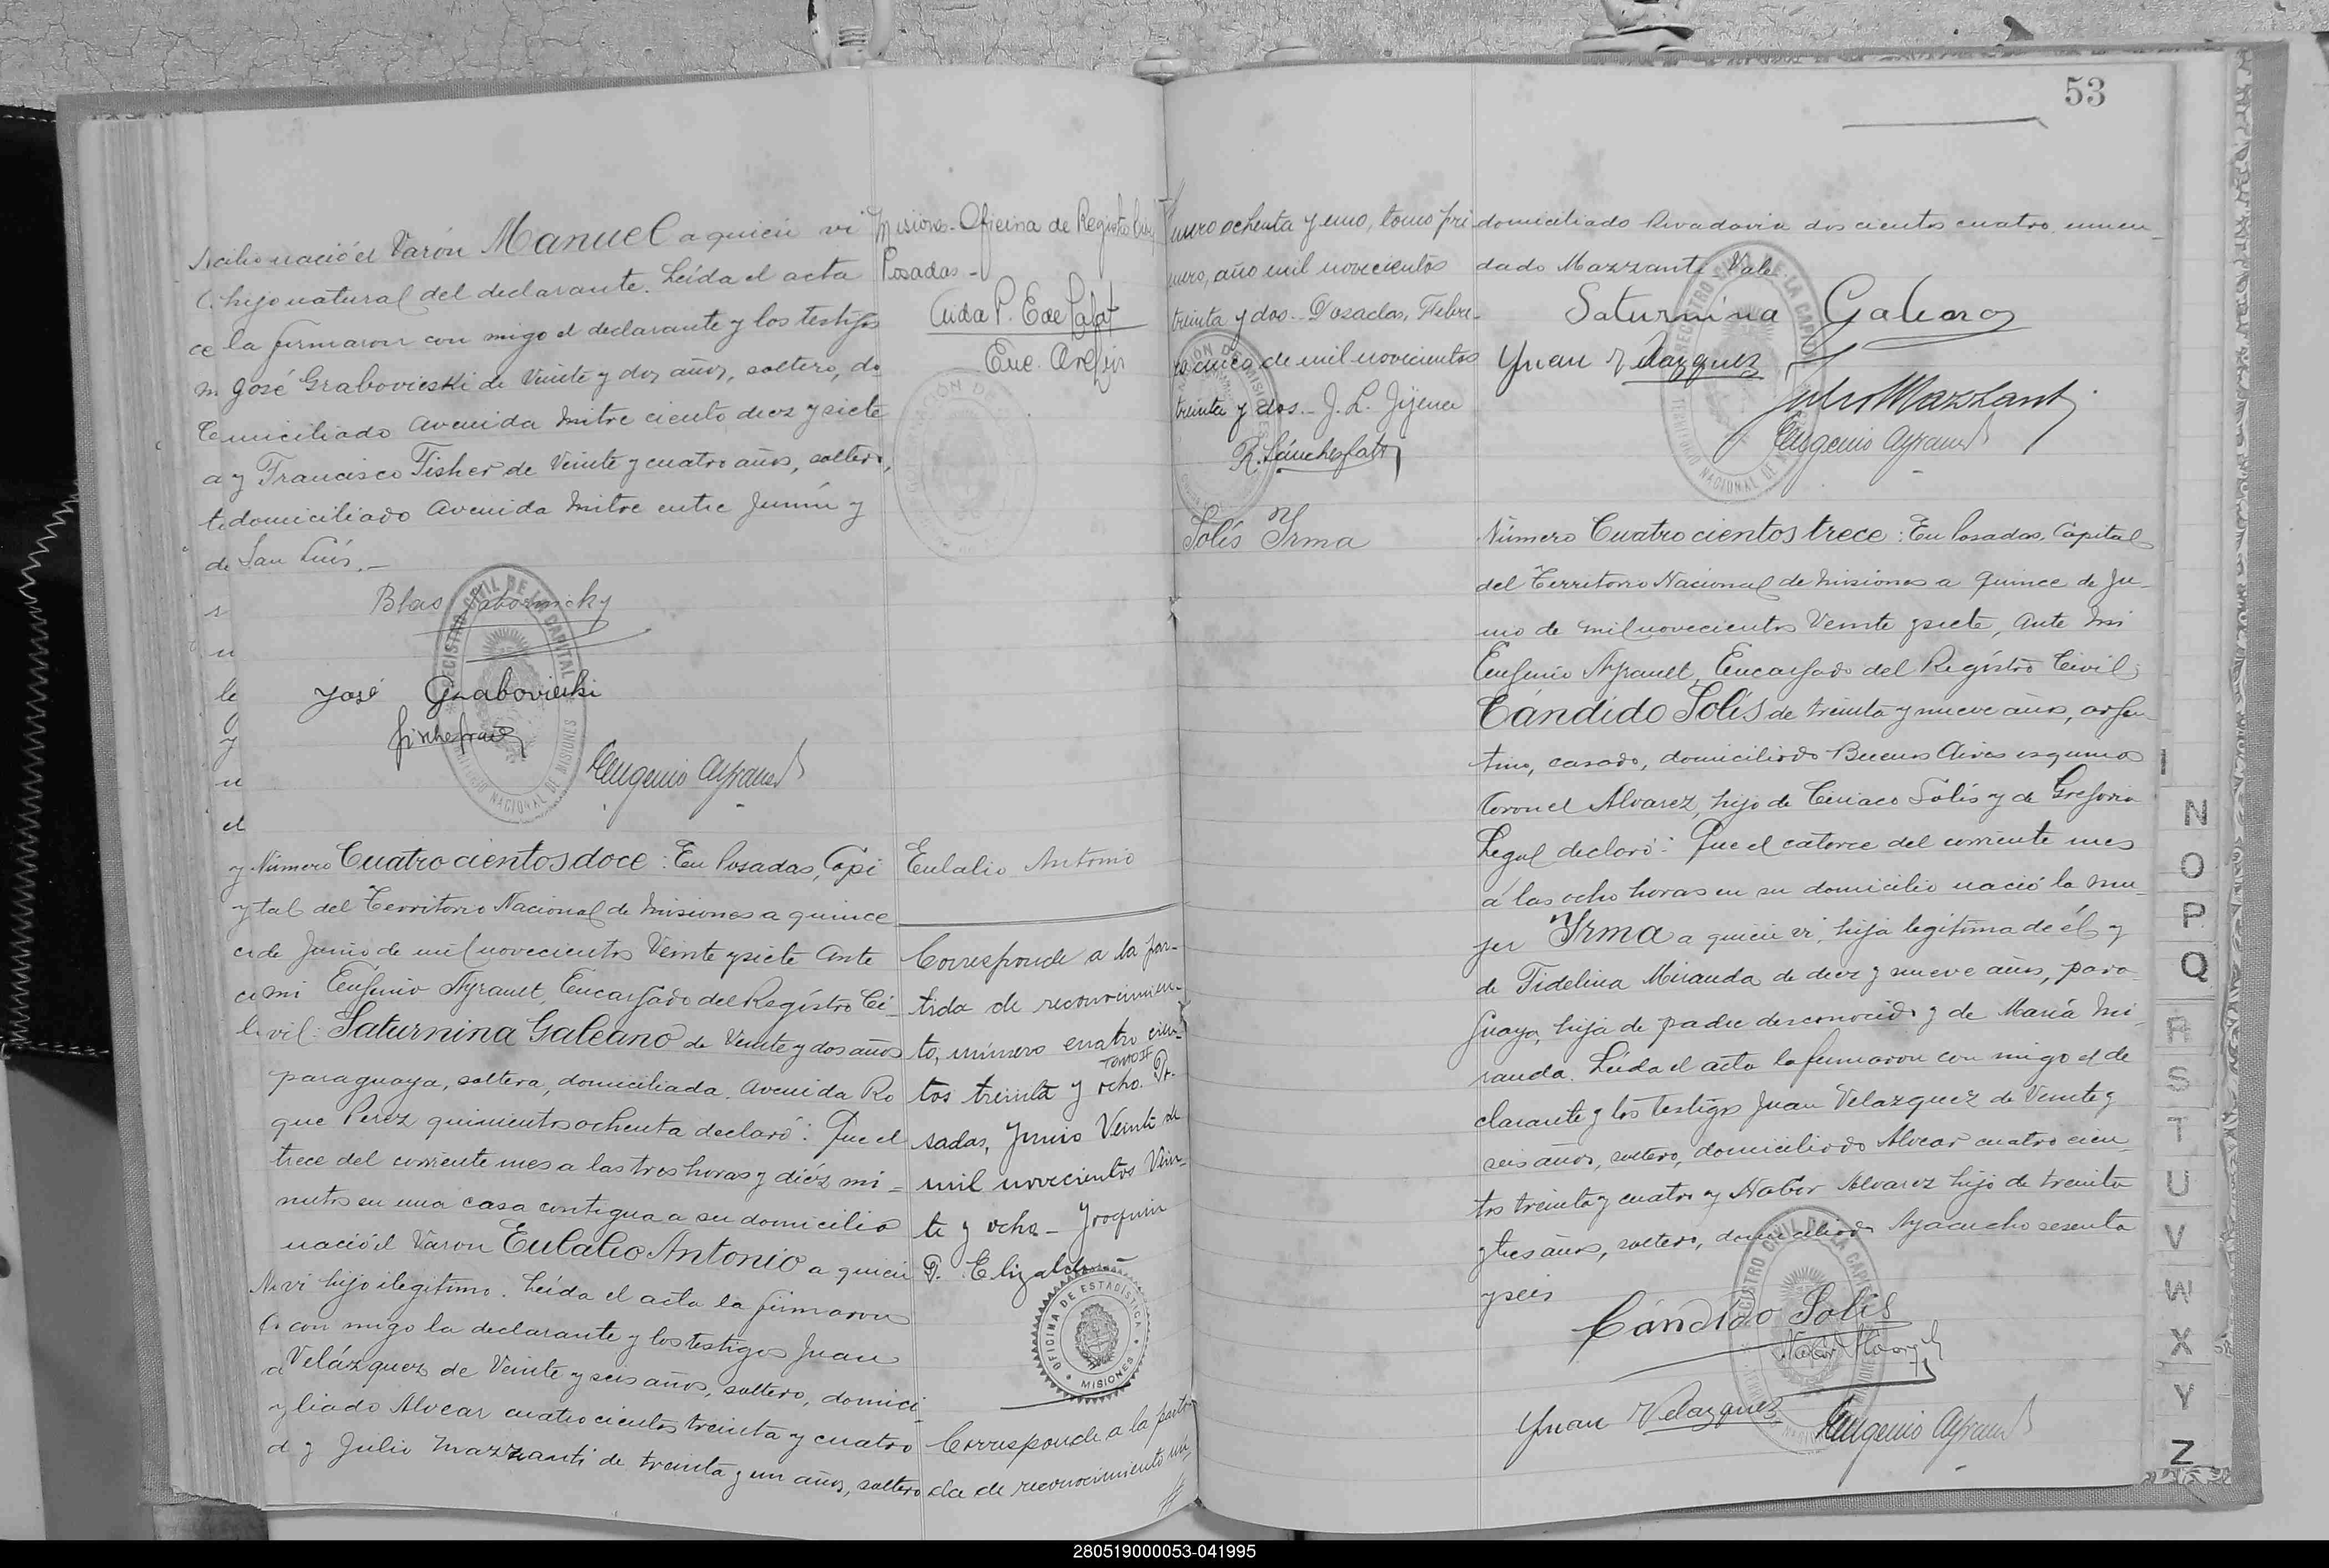 53
nació el Varón Manuel a quien vi
hijo natural del declarante. Leída el acta
la firmaron con migo el declarante y los testigos
José Grabovieski de Veinte y dos años, soltero, do
miciliado Avenida Mitre ciento diez y siete
y Francisco Fisher de Veinte y cuatro años, soltero,
domiciliado Avenida Mitre entre Junín y
San Luís.-
Blas
José Grabovieski
Eugenio Ayrault
Misiones - Oficina de Registro Civil
Posadas -
Número Cuatrocientos doce : En Posadas, Capi
tal del Territorio Nacional de Misiones a quince
de Junio de mil novecientos Veinte y siete Ante
mi Eugenio Ayrault, Encargado del Registro Ci-
vil: Saturnina Galeano de Veinte y dos años
paraguaya, soltera, domiciliada Avenida Ro
que Perez quinientos ochenta declaró: Que el
trece del corriente mes a las tres horas y diéz mi-
nutos en una casa contigua a su domicilio
nació el Varon Eulalio Antonio a quien
vi hijo ilegitimo. Leída el acta la firmaron
con migo la declarante y los testigos Juan
Velázquez de Veinte y seis años, soltero, domici-
liado Alvear cuatrocientos treinta y cuatro
y Julio Mazzanti de treinta y un años, soltero
Eulalio Antonio
Corresponde a la par-
tida de reconocimien-
to, número cuatro cien-
Tomo II
tos treinta y ocho. Po-
sadas, Junio Veinte de
mil novecientos Vein-
te y ocho - Joaquin
P. Elizalde
OFICINA DE ESTADÍSTICA
MISIONES
Corresponde a la parti
da de reconocimiento nú
mero ochenta y uno, tomo pri-
mero, año mil novecientos
treinta y dos - Posadas, Febre-
ro cinco de mil novecientos
treinta y dos - J. L.
domiciliado Rivadavia dos cientos cuatro enmen-
dado Mazzanti - Vale
REGISTRO CIVIL DE LA CAPITAL
TERRITORIO NACIONAL DE MISIONES
Saturnina Galeano
Juan Velazquez
Julio Mazzanti
Eugenio Ayrault
Solís Irma
Número Cuatrocientos trece : En Posadas, Capital
del Territorio Nacional de Misiones a quince de Ju-
nio de mil novecientos Veinte y siete, Ante Mi
Eugenio Ayrault, Encargado del Registro Civil:
Cándido Solís de treinta y nueve años, argen-
tino, casado, domiciliado Buenos Aires esquina
Coronel Alvarez, hijo de Ciriaco Solís y de Gregoria
Legal declaró: Que el catorce del corriente mes
á las ocho horas en su domicilio nació la mu-
jer Irma a quien vi, hija legítima de él y
de Fidelina Miranda de diez y nueve años, para-
guaya, hija de padre desconocido y de María Mi-
randa. Leída el acta la firmaron con migo el de
clarante y los testigos Juan Velazquez de Veinte y
seis años, soltero, domiciliado Alvear cuatro cien
tos treinta y cuatro y Nabor Alvarez hijo de treinta
y tres años, soltero, domiciliado Ayacucho sesenta
y seis
Cándido Solís
Juan Velazquez
Eugenio Ayrault
N
O
P
Q
R
S
T
U
V
W
X
Y
Z
280519000053-041995